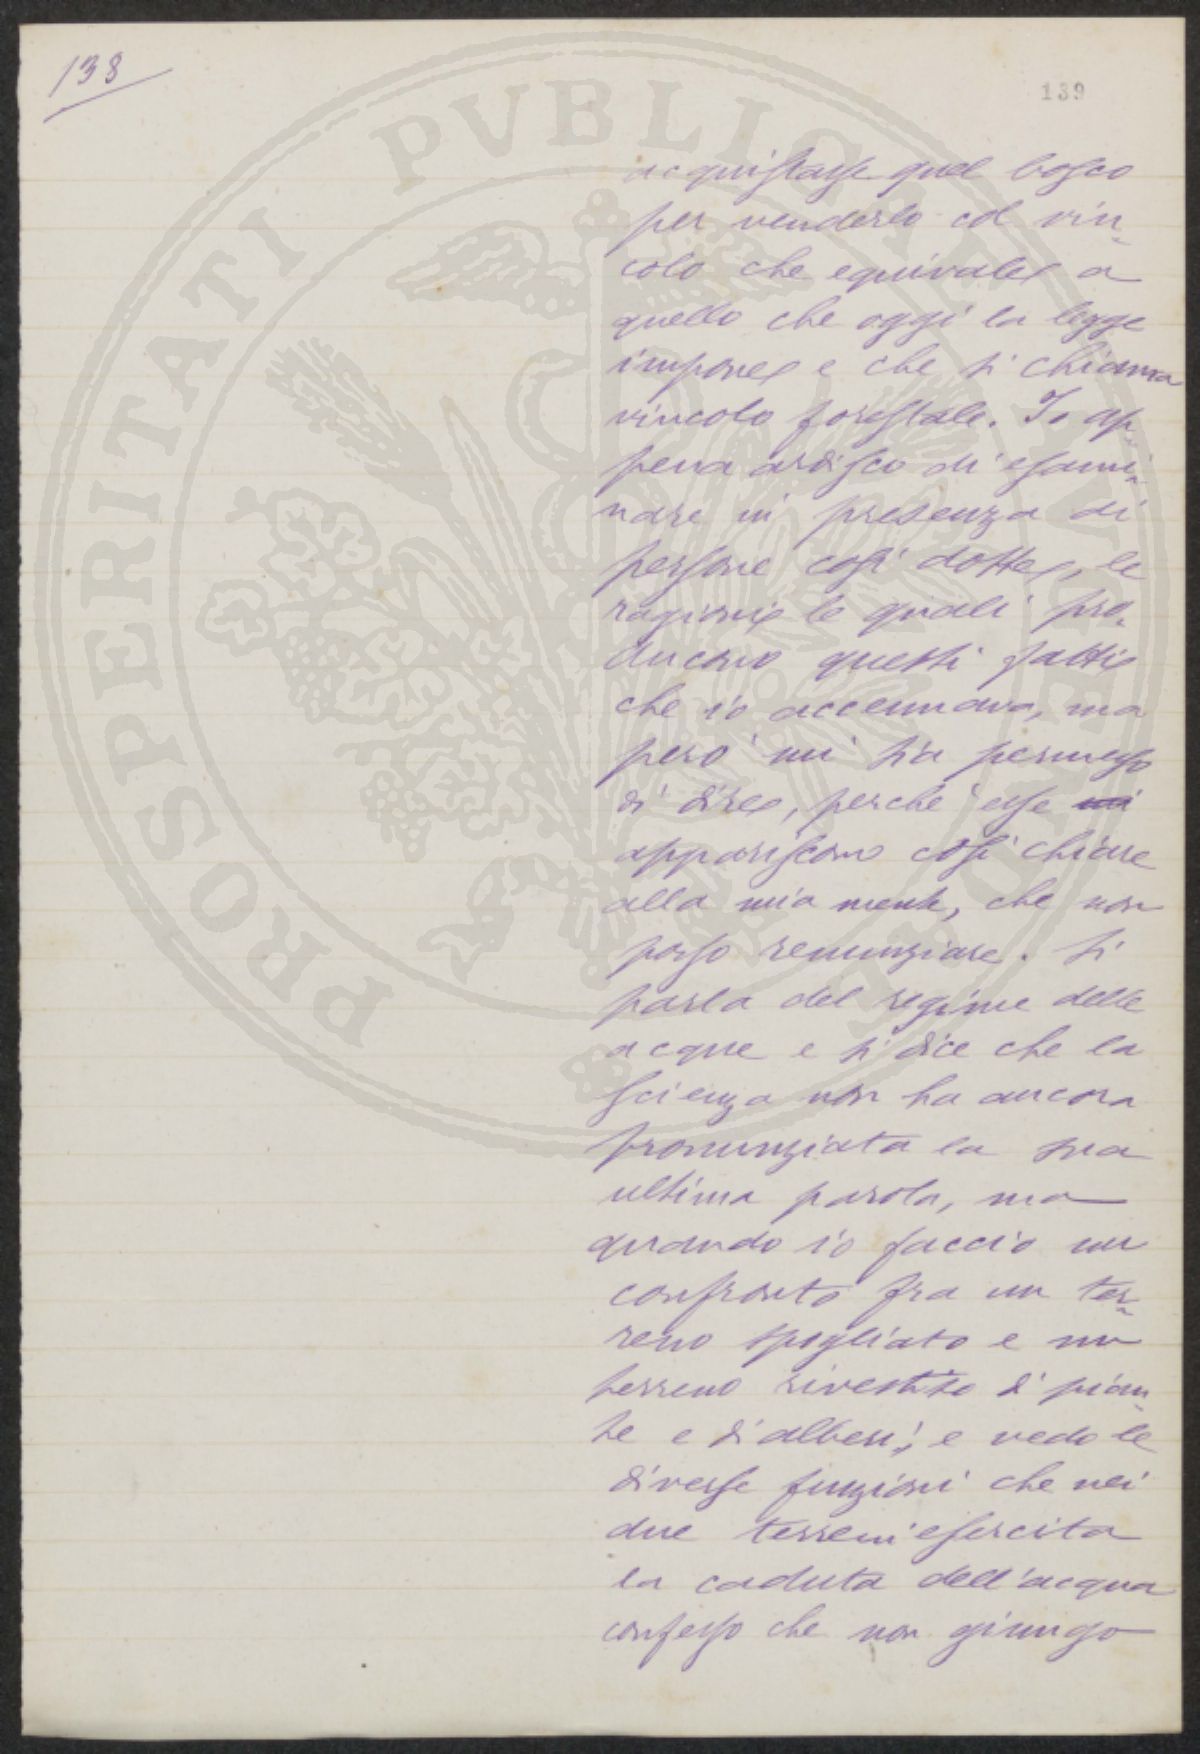 138
139
PROSPERITATI PVBLICAE
acquistasse quel bosco
per venderlo col vin-
colo che equivale a
quello che oggi la legge
impone e che si chiama
vincolo forestale. Io ap-
pena ardisco di esami-
nare in presenza di
persone così dotte, le
ragioni le quali pro-
ducono questi fatti
che io accennava, ma
però mi sia permesso
di dire, perchè esse mi
appariscono così chiare
alla mia mente, che non
posso renunziare. Si
parla del regime delle
acque e si dice che la
scienza non ha ancora
pronunziata la sua
ultima parola, ma
quando io faccio un
confronto fra un ter-
reno spogliato e un
terreno rivestito di pian-
te e di alberi, e vedo le
diverse funzioni che nei
due terreni esercita
la caduta dell'acqua
confesso che non giungo